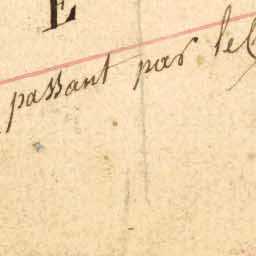 E
passant par le